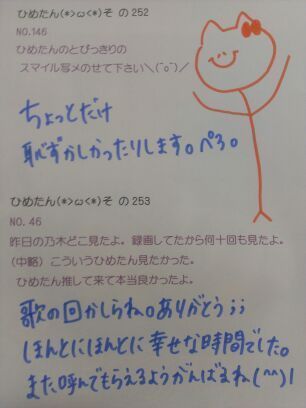 ひめたん(*>ω<*)そ の252
NO.146
ひめたんのとびっきりの
スマイル写メのせて下さい＼(^o^)／
ちょっとだけ
恥ずかしかったりします。ぺろ。
ひめたん(*>ω<*)そ の253
NO. 46
昨日の乃木どこ見たよ。録画してたから何十回も見たよ。
（中略）こういうひめたん見たかった。
ひめたん推して来て本当良かったよ。
歌の回かしらね。ありがとう；；
ほんとにほんとに幸せな時間でした。
また呼んでもらえるようがんばるね(^^)！